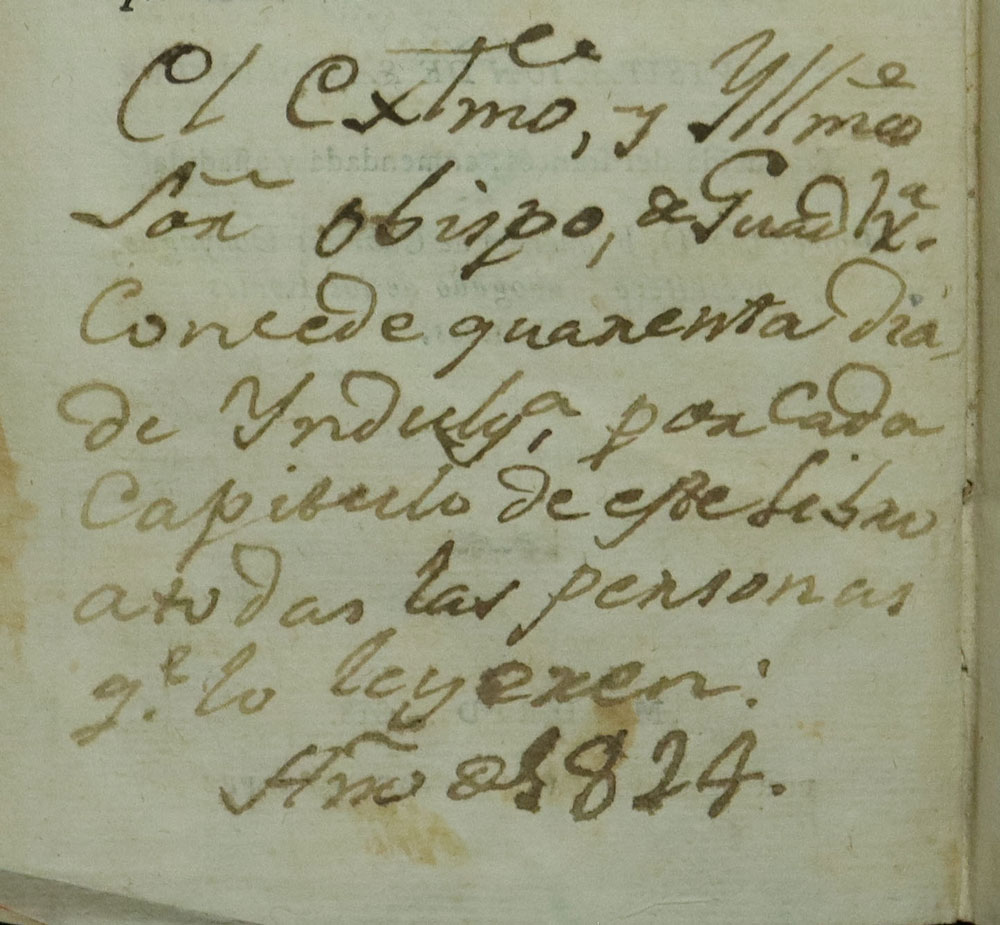 El Exmo, y Yllmo
Sor obispo, de Guadlxa.
Concede quarenta dias
de Yndulga, por cada
Capitulo de este libro
atodas las personas
qe. lo leyeren:
Año de 1824.